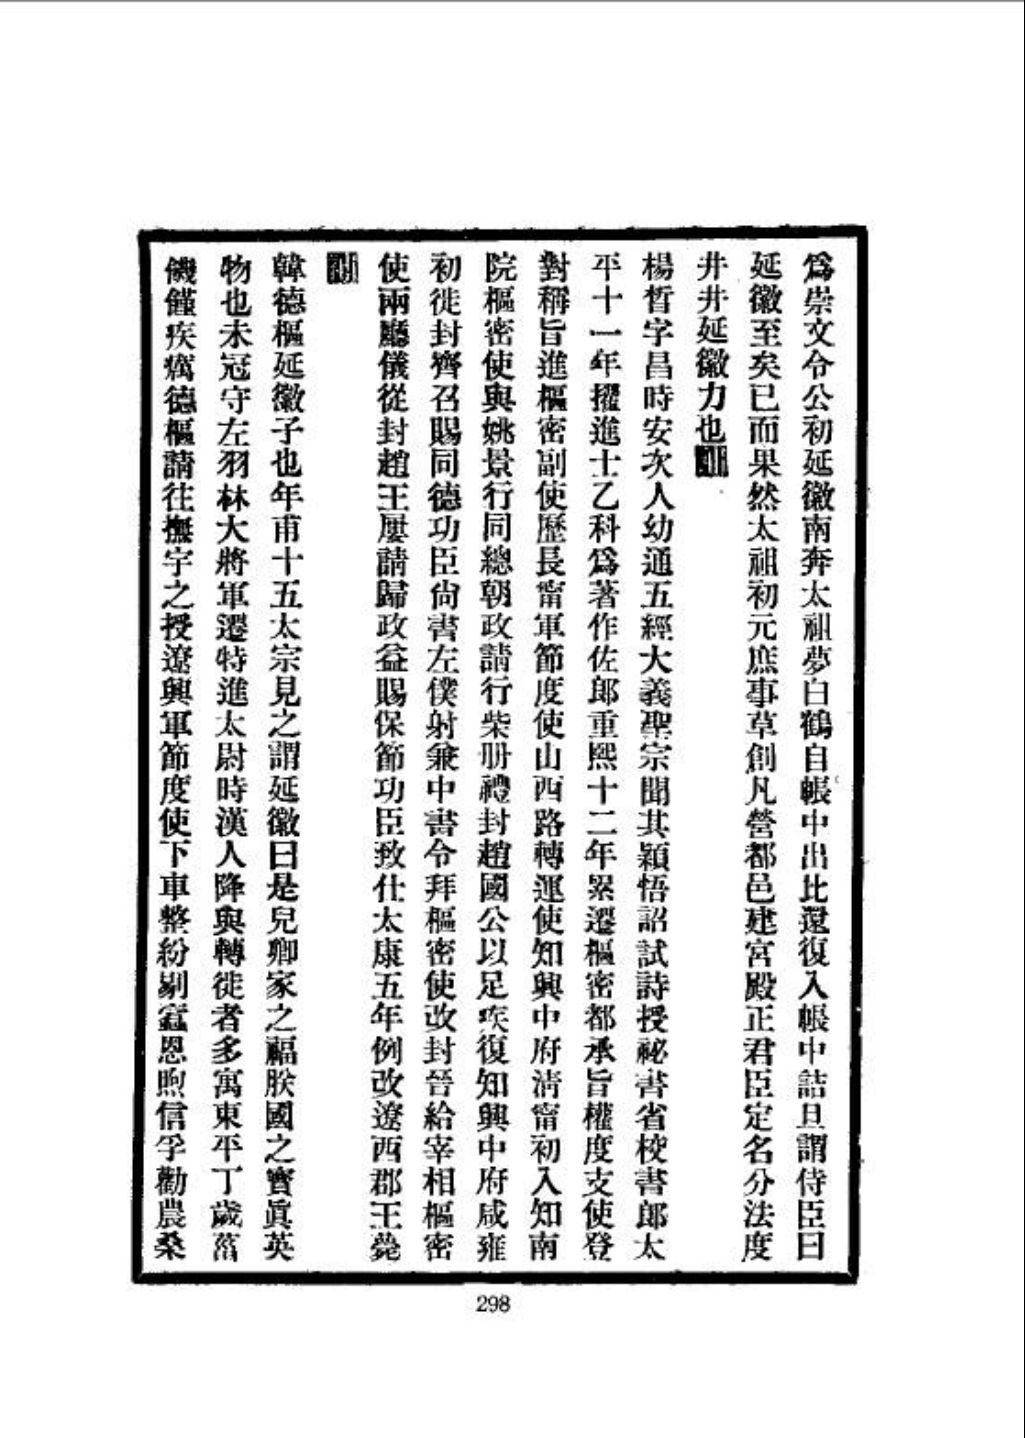 爲崇文令公初延徽南奔太祖夢白鶴自帳中出比還復入帳中詰旦謂侍臣曰
延徽至矣已而果然太祖初元庶事草創凡營都邑建宮殿正君臣定名分法度
井井延徽力也
楊晳字昌時安次人幼通五經大義聖宗聞其穎悟詔試詩授祕書省校書郎太
平十一年擢進士乙科爲著作佐郎重熙十二年累遷樞密都承旨權度支使登
對稱旨進樞密副使歷長甯軍節度使山西路轉運使知興中府淸甯初入知南
院樞密使與姚景行同總朝政請行柴册禮封趙國公以足疾復知興中府咸雍
初徙封齊召賜同德功臣尙書左僕射兼中書令拜樞密使改封晉給宰相樞密
使兩廳儀從封趙王屢請歸政益賜保節功臣致仕太康五年例改遼西郡王薨
韓德樞延徽子也年甫十五太宗見之謂延徽曰是兒卿家之福朕國之寶眞英
物也未冠守左羽林大將軍遷特進太尉時漢人降與轉徙者多寓東平丁歲菑
饑饉疾癘德樞請往撫字之授遼興軍節度使下車整紛剔蠹恩煦信孚勸農桑
298